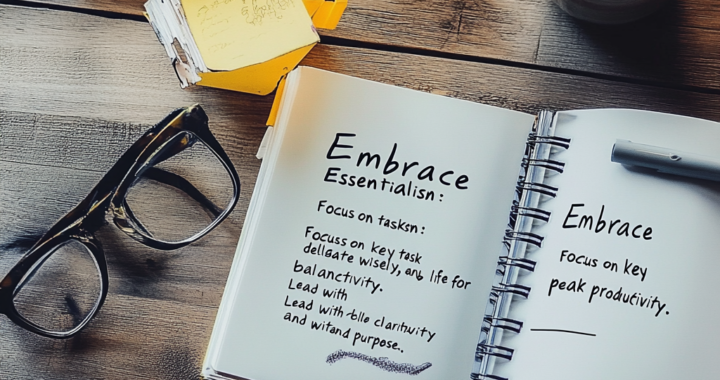 Embrace
Essentialisn:
Focus on tasksn:
Focuss on key task
deligate wisely, life for
balanctivity.
Lead with
Lead with
and witand purpose..
Embrace
Focus on key
peak productivity.